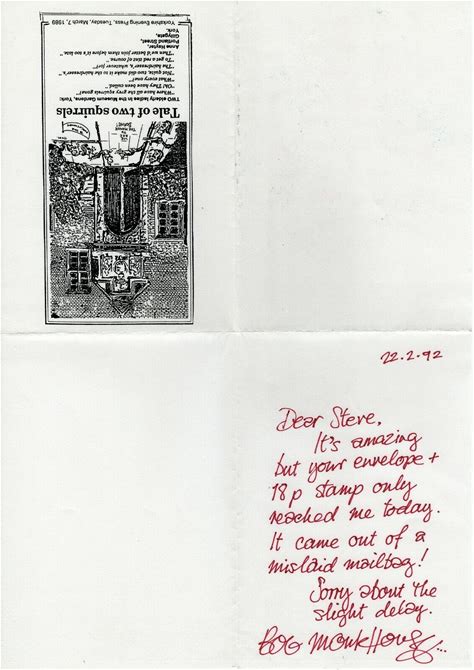 Yorkshire Evening Press, Tuesday, March 7, 1989
Tale of two squirrels
TWO elderly ladies in the Museum Gardens, York.
"Where have all the grey squirrels gone?"
"Oh! They have been culled."
"What? every one?"
"Not quite, two did make it to the hairdresser's."
"The hairdresser's, whatever for?"
"To get a red rinse of course."
"Then we'd better join them before it's too late."
Portland Street,
Gillygate,
York.
22.2.92
Dear Steve,
It's amazing
but your envelope +
18p stamp only
reached me today.
It came out of a
mislaid mailbag!
Sorry about the
slight delay.
Bob Monkhouse...